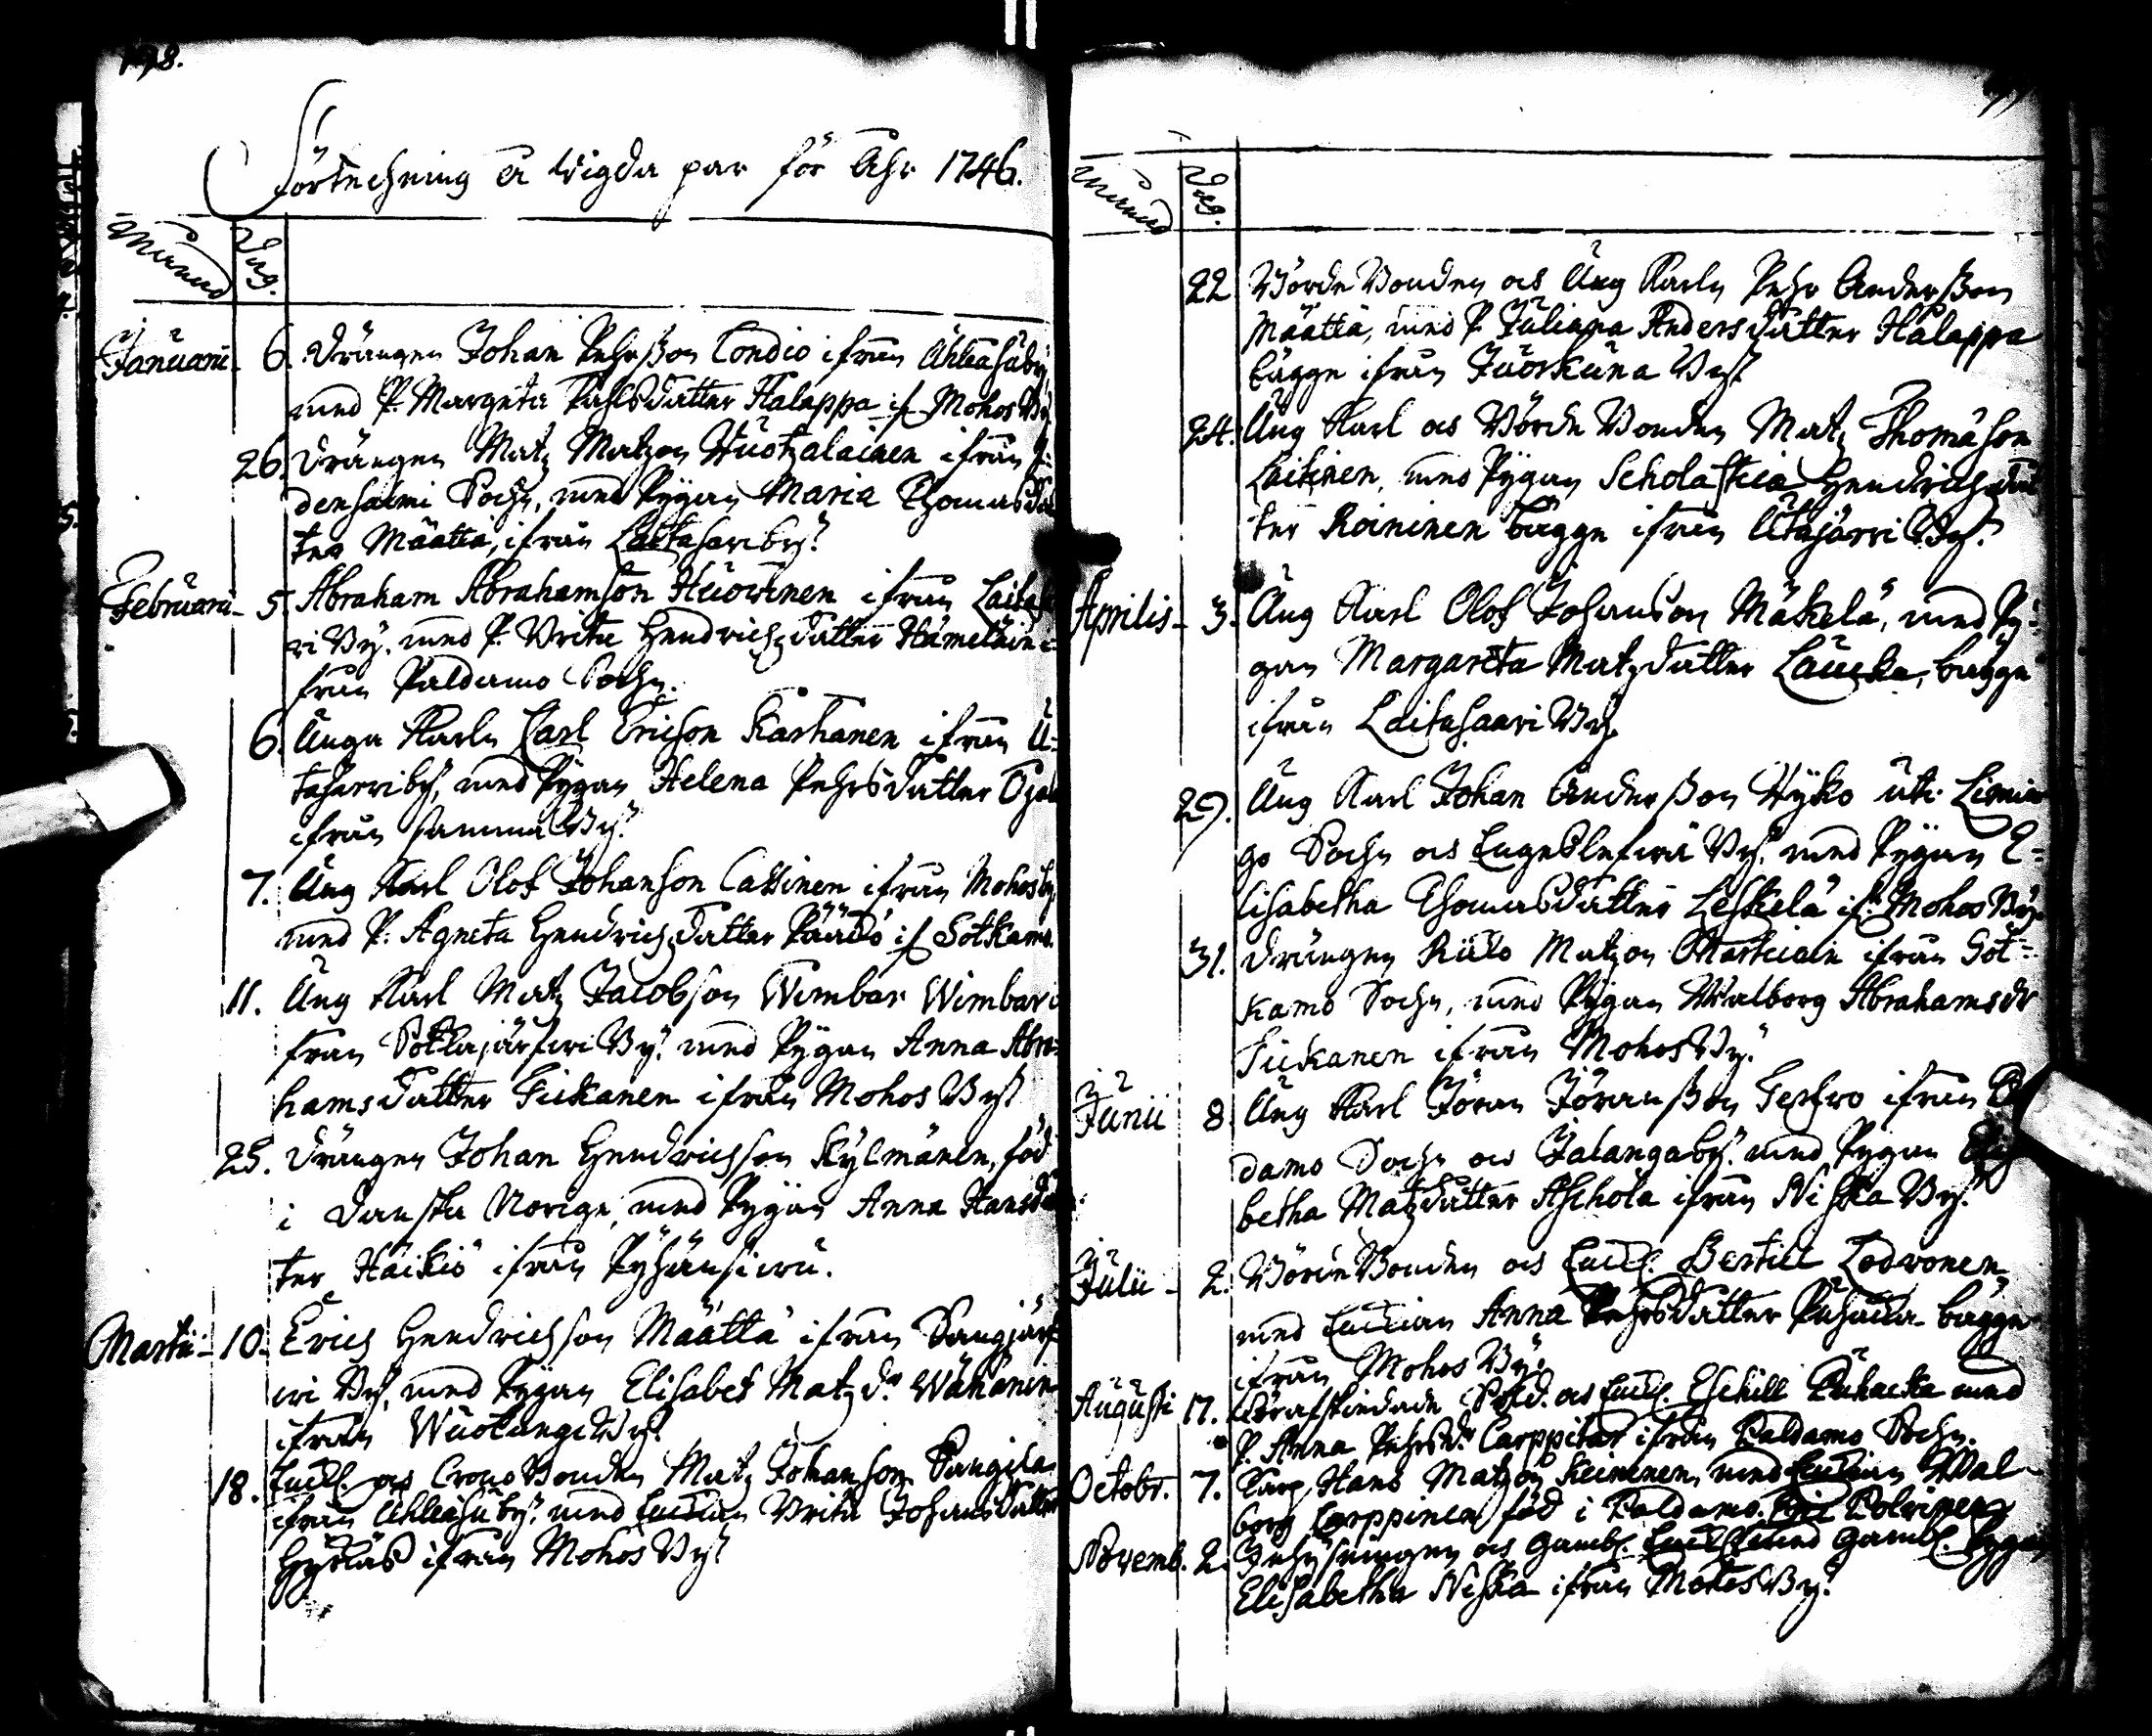 198.
Förtechning å Wigda par för Åhr 1746.
Månad Dag.
Januarii 6. Drängen Johan Pehrßon Condio ifrån Ahlasåby,
med P. Margeta Påhlsdatter Halappa if Mohos By.
26. Drängen Matz Matzon Huotzalainen ifrån I=
densalmi Sochn, med Pÿgan Maria Thomasdat
ter Määttä, ifrån Laitasari by.
Februarii 5. Abraham Abrahamson Huowinen ifrån Laitasa
ri By. med P. Britu Hendrichsdatter Hämeläin i=
från Paldamo Sochn.
6. Unga Karln Carl Ericson Karhanen ifrån U=
tajarwi by, med Pÿgan Helena Pehrsdatter
ifrån samma By.
7. Ung Karl Olof Johanson Cassinen ifrån Mohos by,
med P. Agneta Hendrichsdatter Päädö if Sotkamo.
11. Ung Karl Matz Jacobson Wimbar Wimbar i
från Sotkajärfwi By. med Pÿgan Anna Abra=
hamsdatter Tiikanen ifrån Mohos By.
25. Drängen Johan Hendrichsson Kylmänen, föd
i Danska Norige, med Pÿgan Anna Hansdat
ter Häikiö ifrån Pyhänsiwu.
Martii 10. Erich Hendrichsson Määttä ifrån Sangjärf
wi By, med Pÿgan Elisabet Matzdr Wähänen
ifrån Wuotungi By.
18. Enckl. os Crono Bonden Matz Johanson Sangila
ifrån Ahlasu by. med Enckian Britu Johansdatter
ifrån Mohos By.
Månad Dag.
22 Börde Bonden os Ung Karln Pehr Anderßon
Määttä, med P. Juliana Andersdatter Halappa
bägge ifrån Juorkuna By.
24. Ung Karl os Börde Bonden Matz Thomason
Laitinen, med Pÿgan Scholastica Hendrichsdat
ter Roininen bägge ifrån Utajärwi By.
Aprilis 3. Ung Karl Olof Johanson Mäkelä, med Pÿ=
gan Margareta Matzdatter Laucka, bägge
ifrån Laitasaari By.
29. Ung Karl Johan Anderßon Hyko uti Limin
go Sochn os By. med Pÿgan E=
lisabetha Thomasdatter Leskelä if. Mohos By.
31. Drängen Matzon ifrån Sot=
kamo Sochn, med Pÿgan Walborg Abrahamsdr
Tiikanen ifrån Mohos By.
Junii 8. Ung Karl Jöran Jöranßon Terfwo ifrån
damo Sochn os Jalangaby. med Pÿgan
betha Matzdatter Ahola ifrån Niska By.
Julii 2. Börde Bonden os Enckl. Bertill Lodwonen
med Enckian Anna Pehrsdatter Puhacka bägge
ifrån Mohos By.
Augusti 17. Sold. os Enckl. Eschill Puhacka med
P. Anna Pehrsdr Carppitar ifrån Paldamo Sochn.
Octobr. 7. Hans Matzon Keininen, med Enckian Wal
borg Carppinen föd i Paldamo.
Novemb. 2. os Gaml. Enckl. med Gaml. Pygan
Elisabetha Niska ifrån Mohos By.